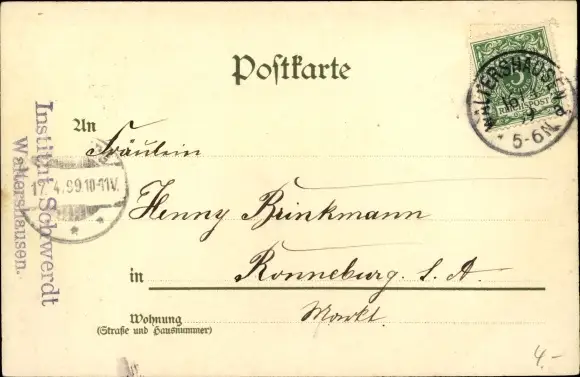 Postkarte
REICHSPOST
WALTERSHAUSEN
5-6N.
An
Fräulein
17.4.99.10-11V.
Institut Schwerdt
Waltershausen.
Henny Brinkmann
in Ronneburg. S. A.
Markt.
Wohnung
(Straße und Hausnummer)
4.-